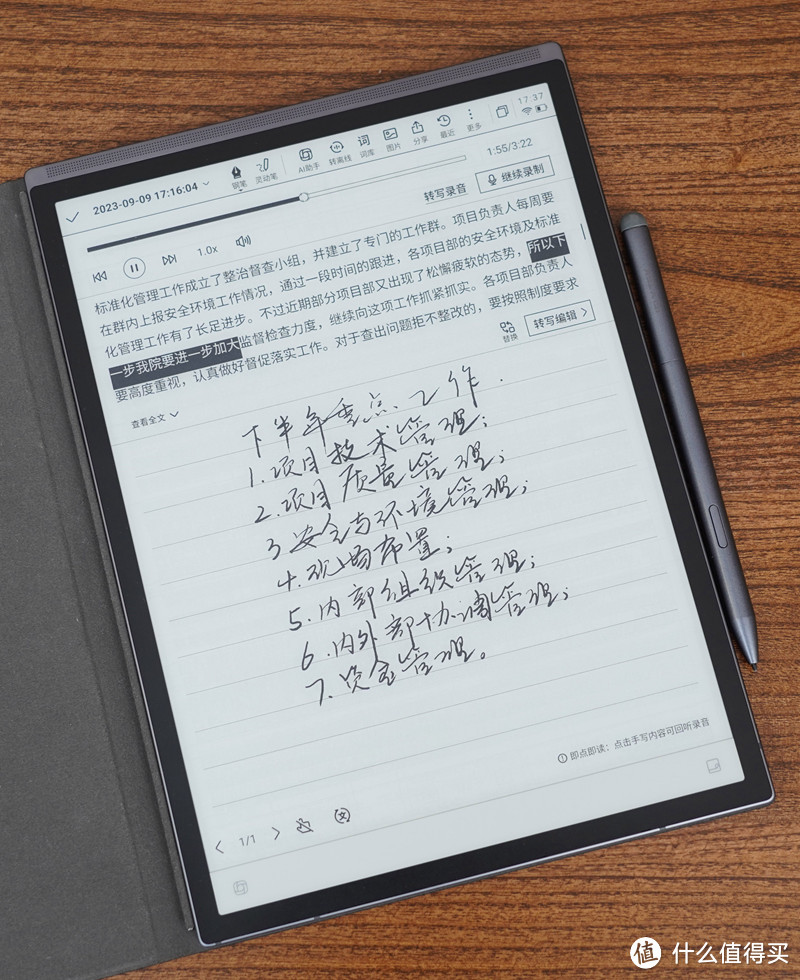 17:37
2023-09-09 17:16:04
钢笔 灵动笔 AI助手 转离线 词库 图片 分享 最近 更多
1:55/3:22
1.0x
转写录音 继续录制
标准化管理工作成立了整治督查小组，并建立了专门的工作群。项目负责人每周要
在群内上报安全环境工作情况，通过一段时间的跟进，各项目部的安全环境及标准
化管理工作有了长足进步。不过近期部分项目部又出现了松懈疲软的态势，所以下
一步我院要进一步加大监督检查力度，继续向这项工作抓紧抓实。各项目部负责人
要高度重视，认真做好督促落实工作。对于查出问题拒不整改的，要按照制度要求
查看全文
替换 转写编辑
下半年重点工作.
1.项目技术管理；
2.项目质量管理；
3安全与环境管理；
4.现场布置；
5.内部组织管理；
6.内外部协调管理；
7.资金管理。
即点即读：点击手写内容可回听录音
1/1
值 什么值得买